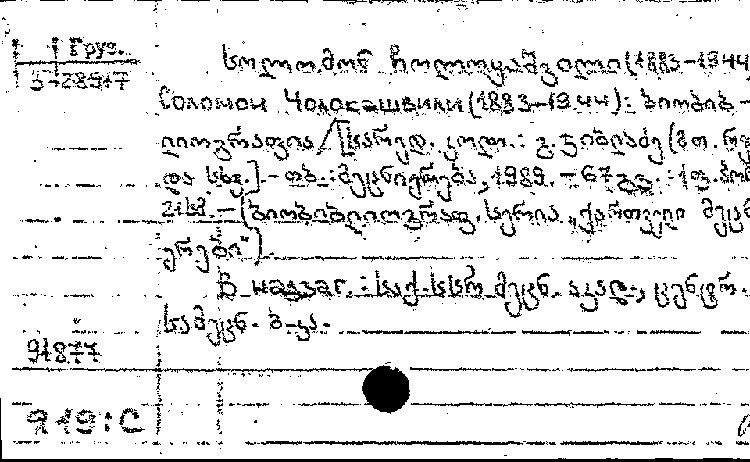 Груз.
3-28917
სოლომონ ჩოლოყაშვილი (1883-1944
Соломон Чолокашвили (1883-1944): ბიობიბ-
ლიოგრაფია / [სარედ. კოლ.: გ. ჯიბლაძე (მთ. რედ
და სხვ.]. - თბ.: მეცნიერება, 1989. - 67 გვ.: 1 ფ. პორ
21სმ. - (ბიობიბლიოგრაფ. სერია „ქართველი მეცნ
ერები“)
В надзаг.: საქ. სსრ მეცნ. აკად., ცენტრ.
სამეცნ. ბ-კა.
91877
919:С